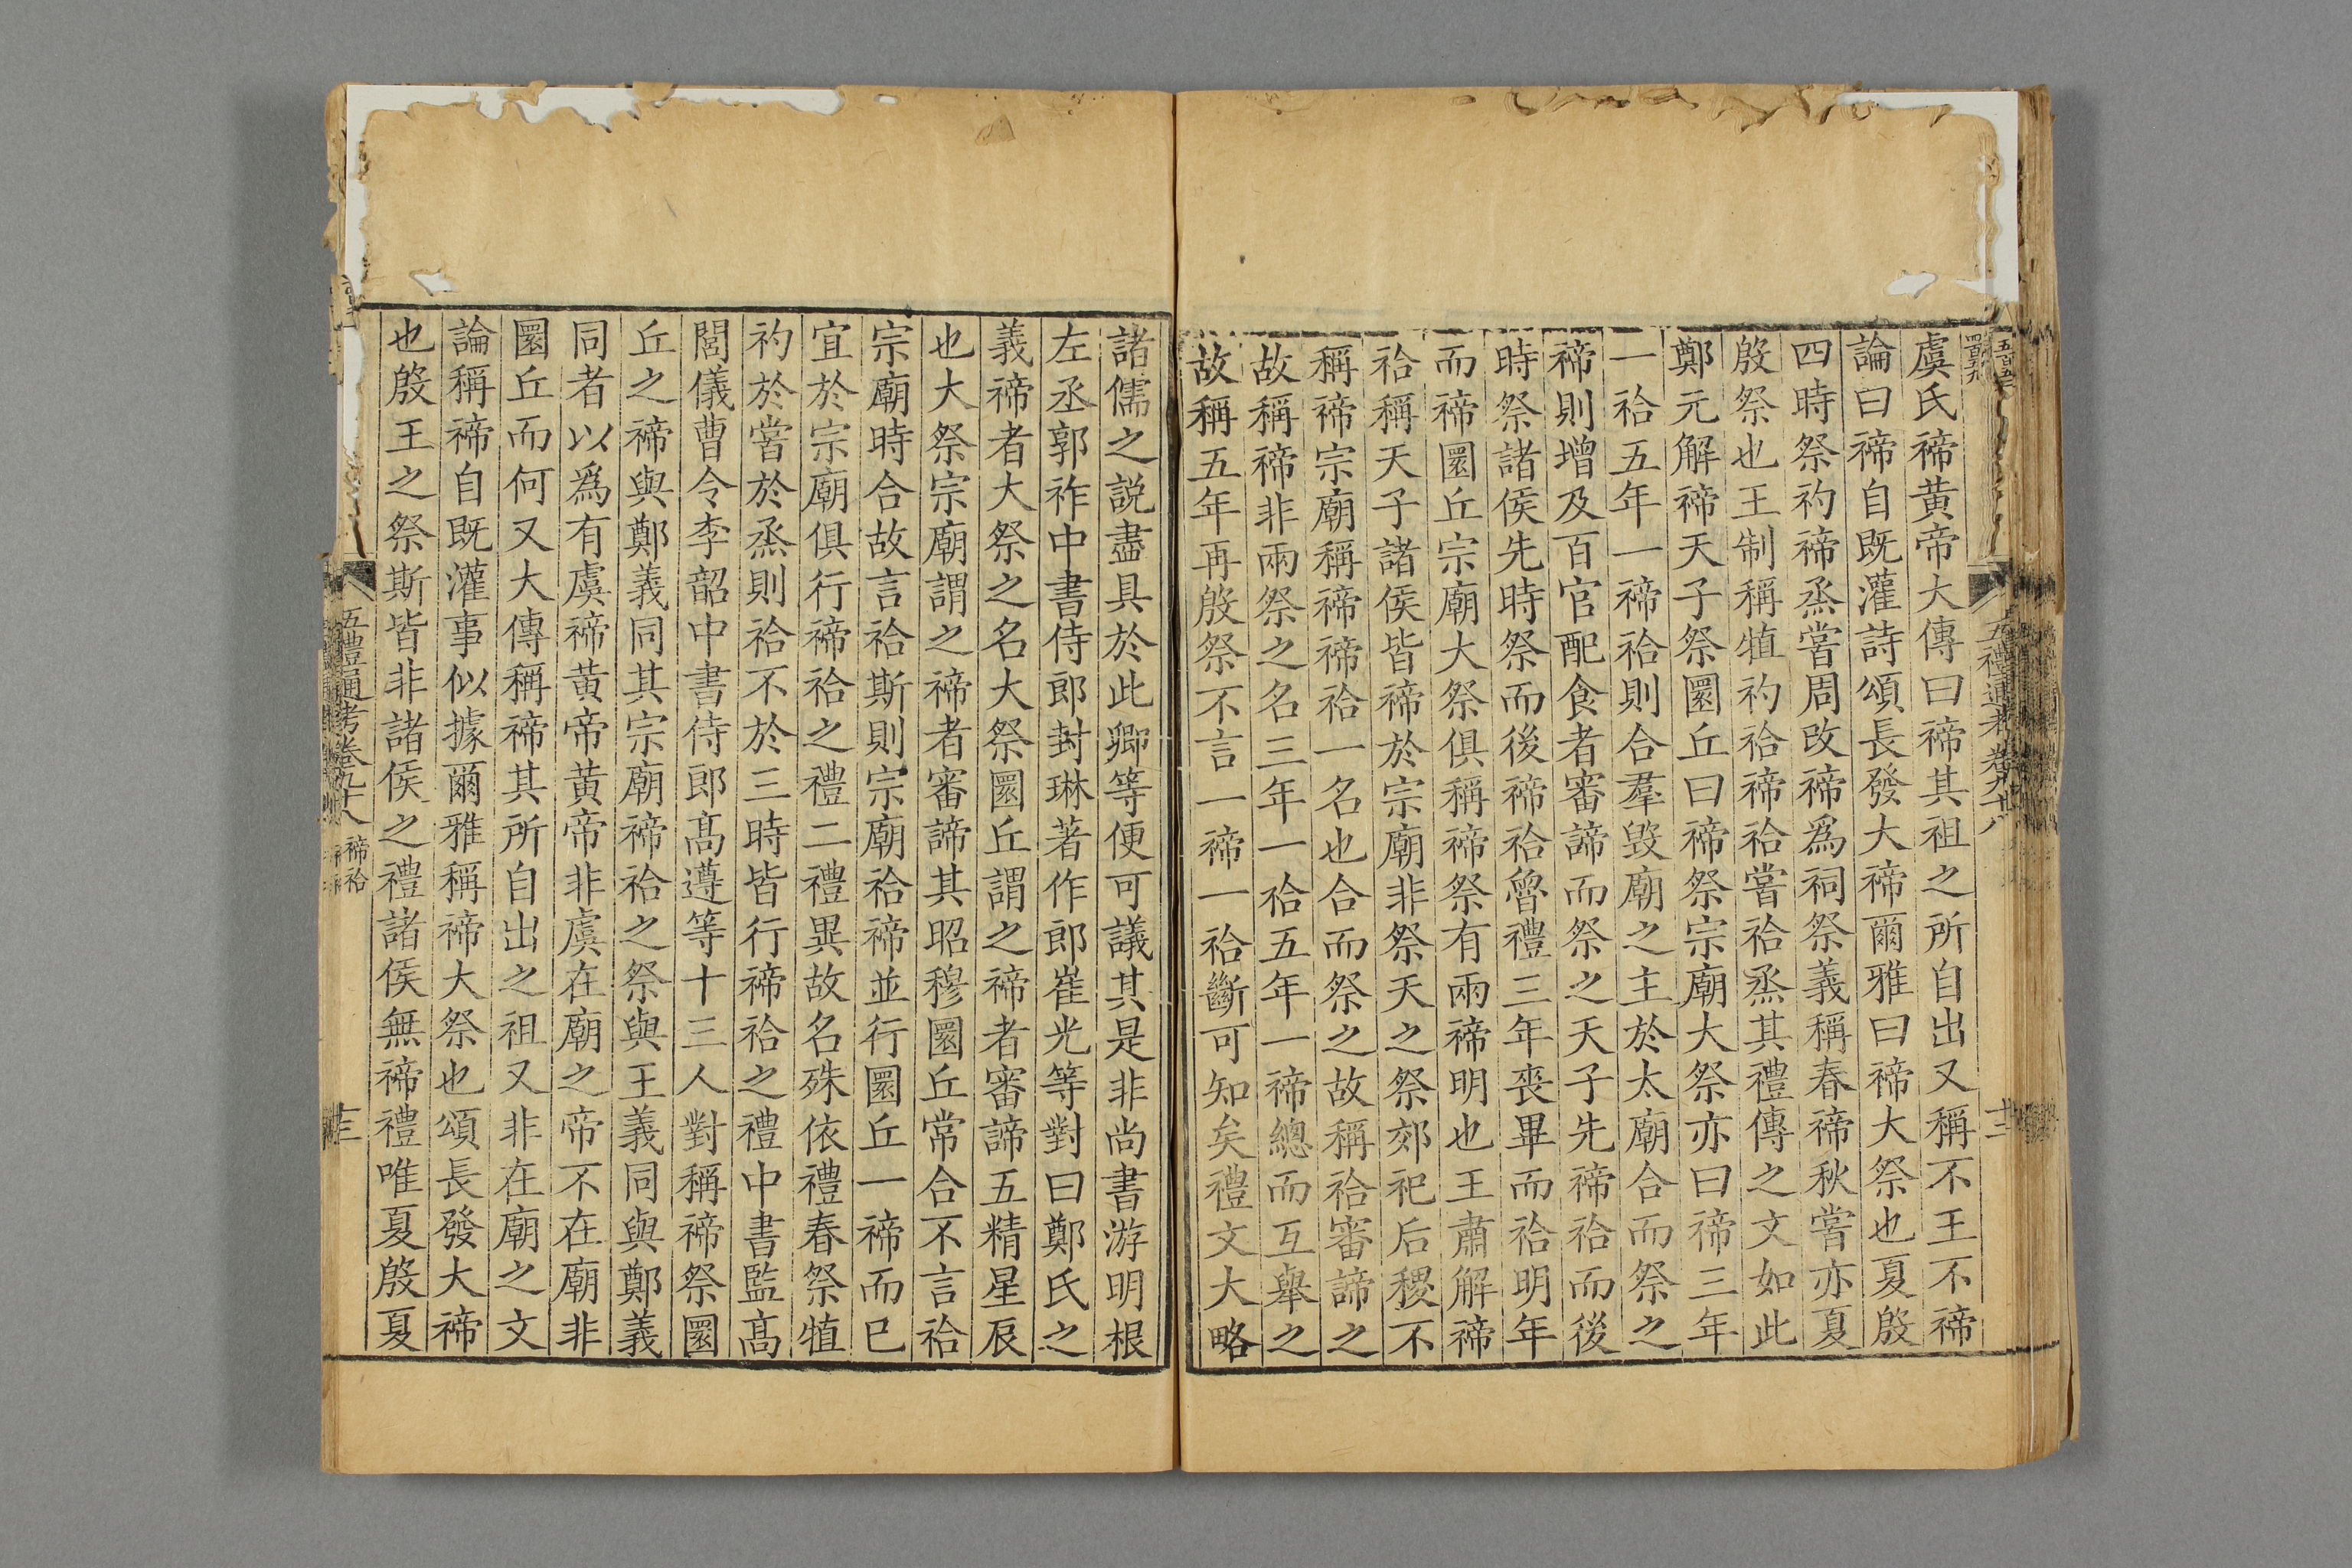 虞氏禘黄帝大傳曰禘其祖之所自出又稱不王不禘
論曰禘自既灌詩頌長發大禘爾雅曰禘大祭也夏殷
四時祭礿禘烝嘗周改禘爲祠祭義稱春禘秋嘗亦夏
殷祭也王制稱犆礿祫禘祫嘗祫烝其禮傳之文如此
鄭元解禘天子祭圜丘曰禘祭宗廟大祭亦曰禘三年
一祫五年一禘祫則合羣毀廟之主於太廟合而祭之
禘則增及百官配食者審諦而祭之天子先禘祫而後
時祭諸侯先時祭而後禘祫魯禮三年喪畢而祫明年
而禘圜丘宗廟大祭俱稱禘祭有兩禘明也王肅解禘
祫稱天子諸侯皆禘於宗廟非祭天之祭郊祀后稷不
稱禘宗廟稱禘禘祫一名也合而祭之故稱祫審諦之
故稱禘非兩祭之名三年一祫五年一禘總而互舉之
故稱五年再殷祭不言一禘一祫斷可知矣禮文大略
諸儒之說盡具於此卿等便可議其是非尚書游明根
左丞郭祚中書侍郎封琳著作郎崔光等對曰鄭氏之
義禘者大祭之名大祭圜丘謂之禘者審諦五精星辰
也大祭宗廟謂之禘者審諦其昭穆圜丘常合不言祫
宗廟時合故言祫斯則宗廟祫禘並行圜丘一禘而已
宜於宗廟俱行禘祫之禮二禮異故名殊依禮春祭犆
礿於嘗於烝則祫不於三時皆行禘祫之禮中書監高
閭儀曹令李韶中書侍郎高遵等十三人對稱禘祭圜
丘之禘與鄭義同其宗廟禘祫之祭與王義同與鄭義
同者以爲有虞禘黄帝黄帝非虞在廟之帝不在廟非
圜丘而何又大傳稱禘其所自出之祖又非在廟之文
論稱禘自既灌事似據爾雅稱禘大祭也頌長發大禘
也殷王之祭斯皆非諸侯之禮諸侯無禘禮唯夏殷夏
五禮通考卷九十八 禘祫
十三